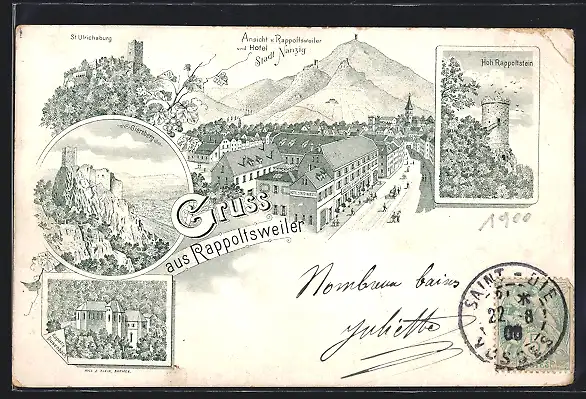 St Ulrichsburg
Ansicht v. Rappoltsweiler
und Hotel
Stadt Nanzig
Hoh Rappoltstein
Giersberg
Gruss
aus Rappoltsweiler
1900
Nombreux bains
Juliette
SAINT-DIE
22 - 8
00
VOSGES